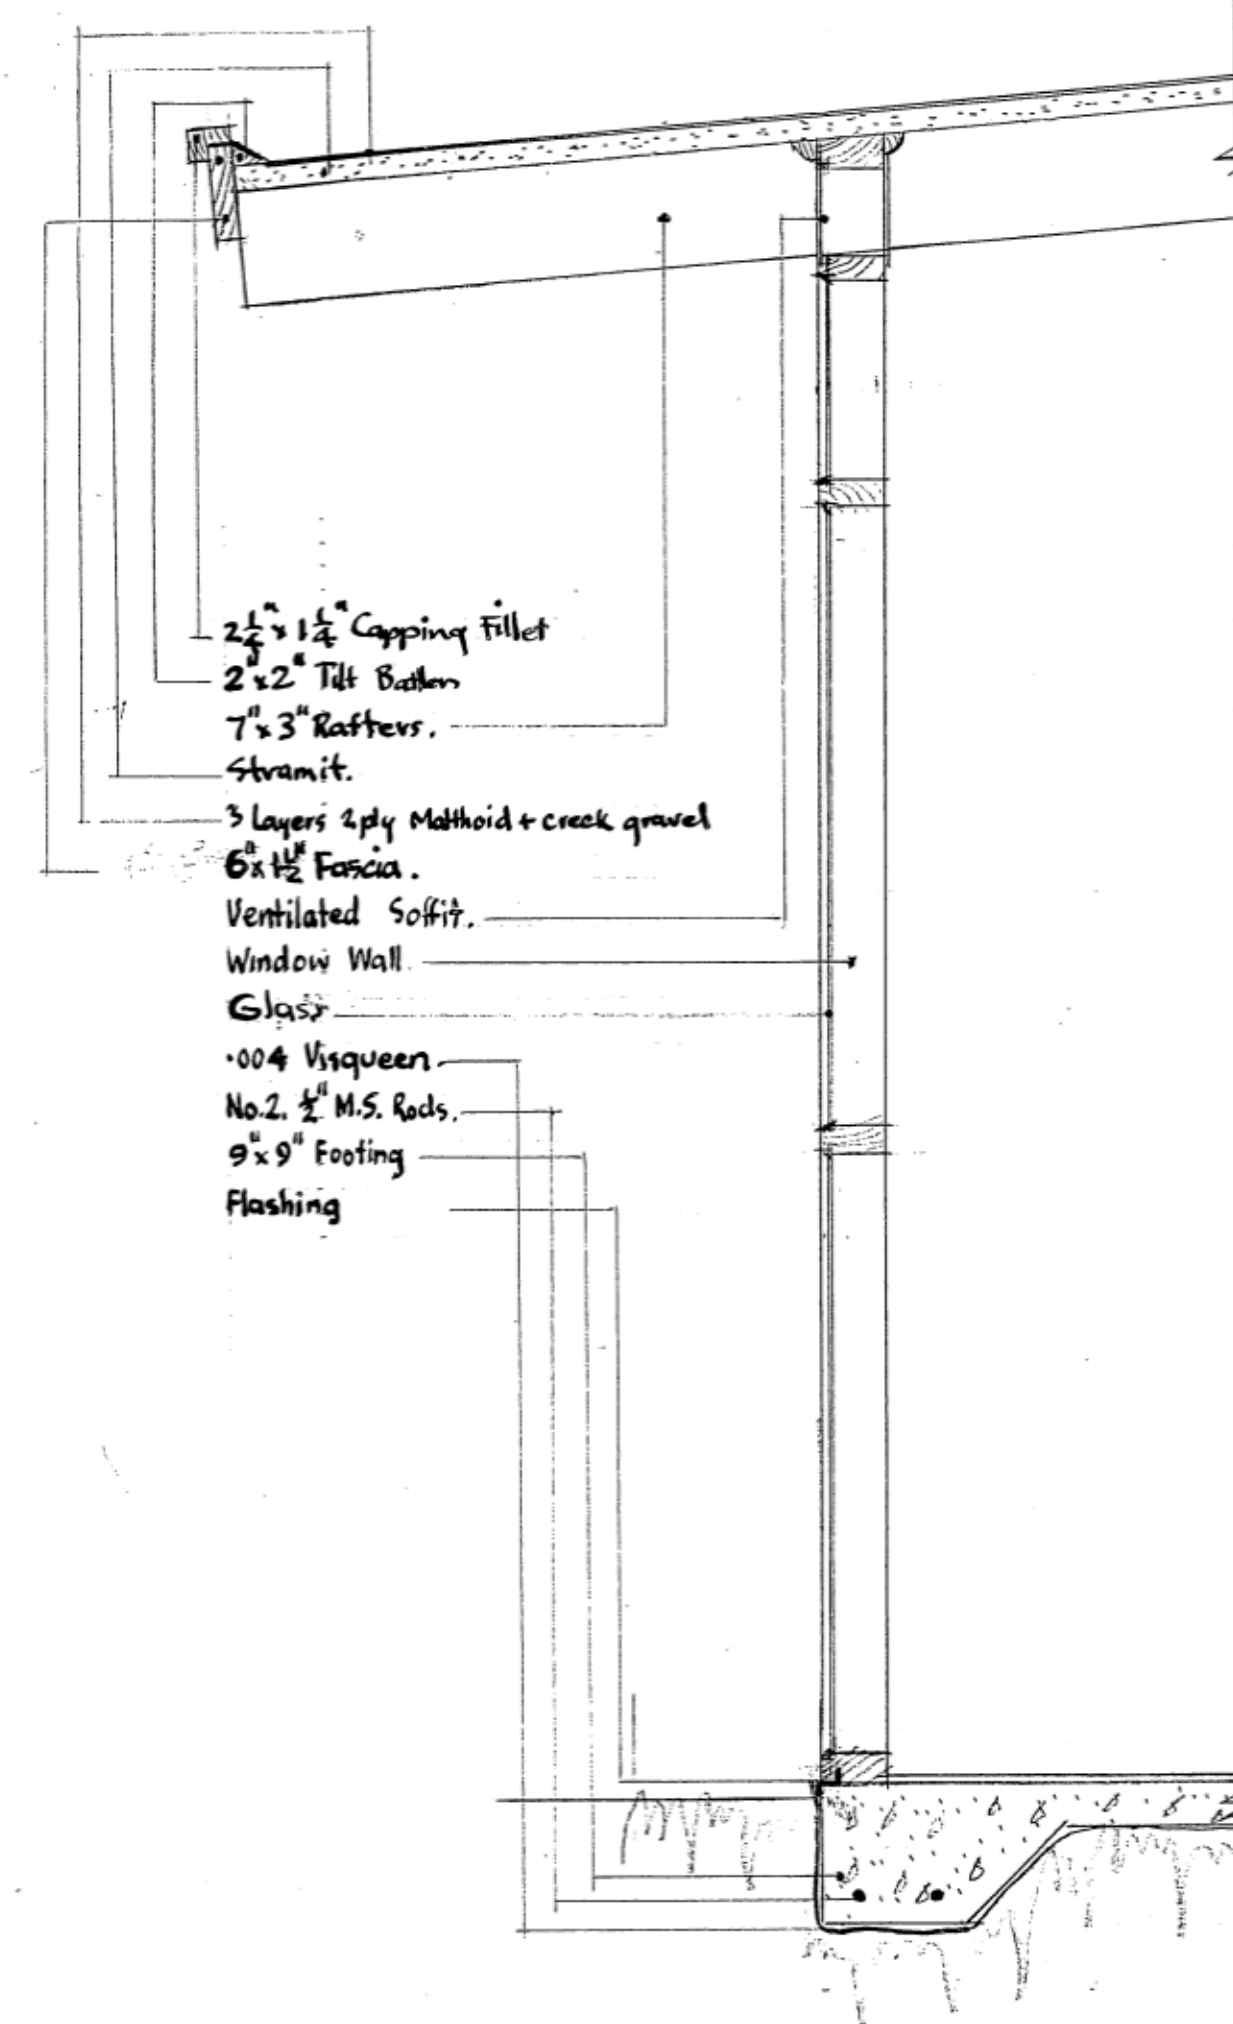 2 1/4" x 1 1/4" Capping Fillet
2" x 2" Tilt Batten
7" x 3" Rafters.
Stramit.
3 Layers 2 ply Malthoid + creek gravel
6" x 1 1/2" Fascia.
Ventilated Soffit.
Window Wall.
Glass
.004 Visqueen
No.2. 1/2" M.S. Rods.
9" x 9" Footing
Flashing